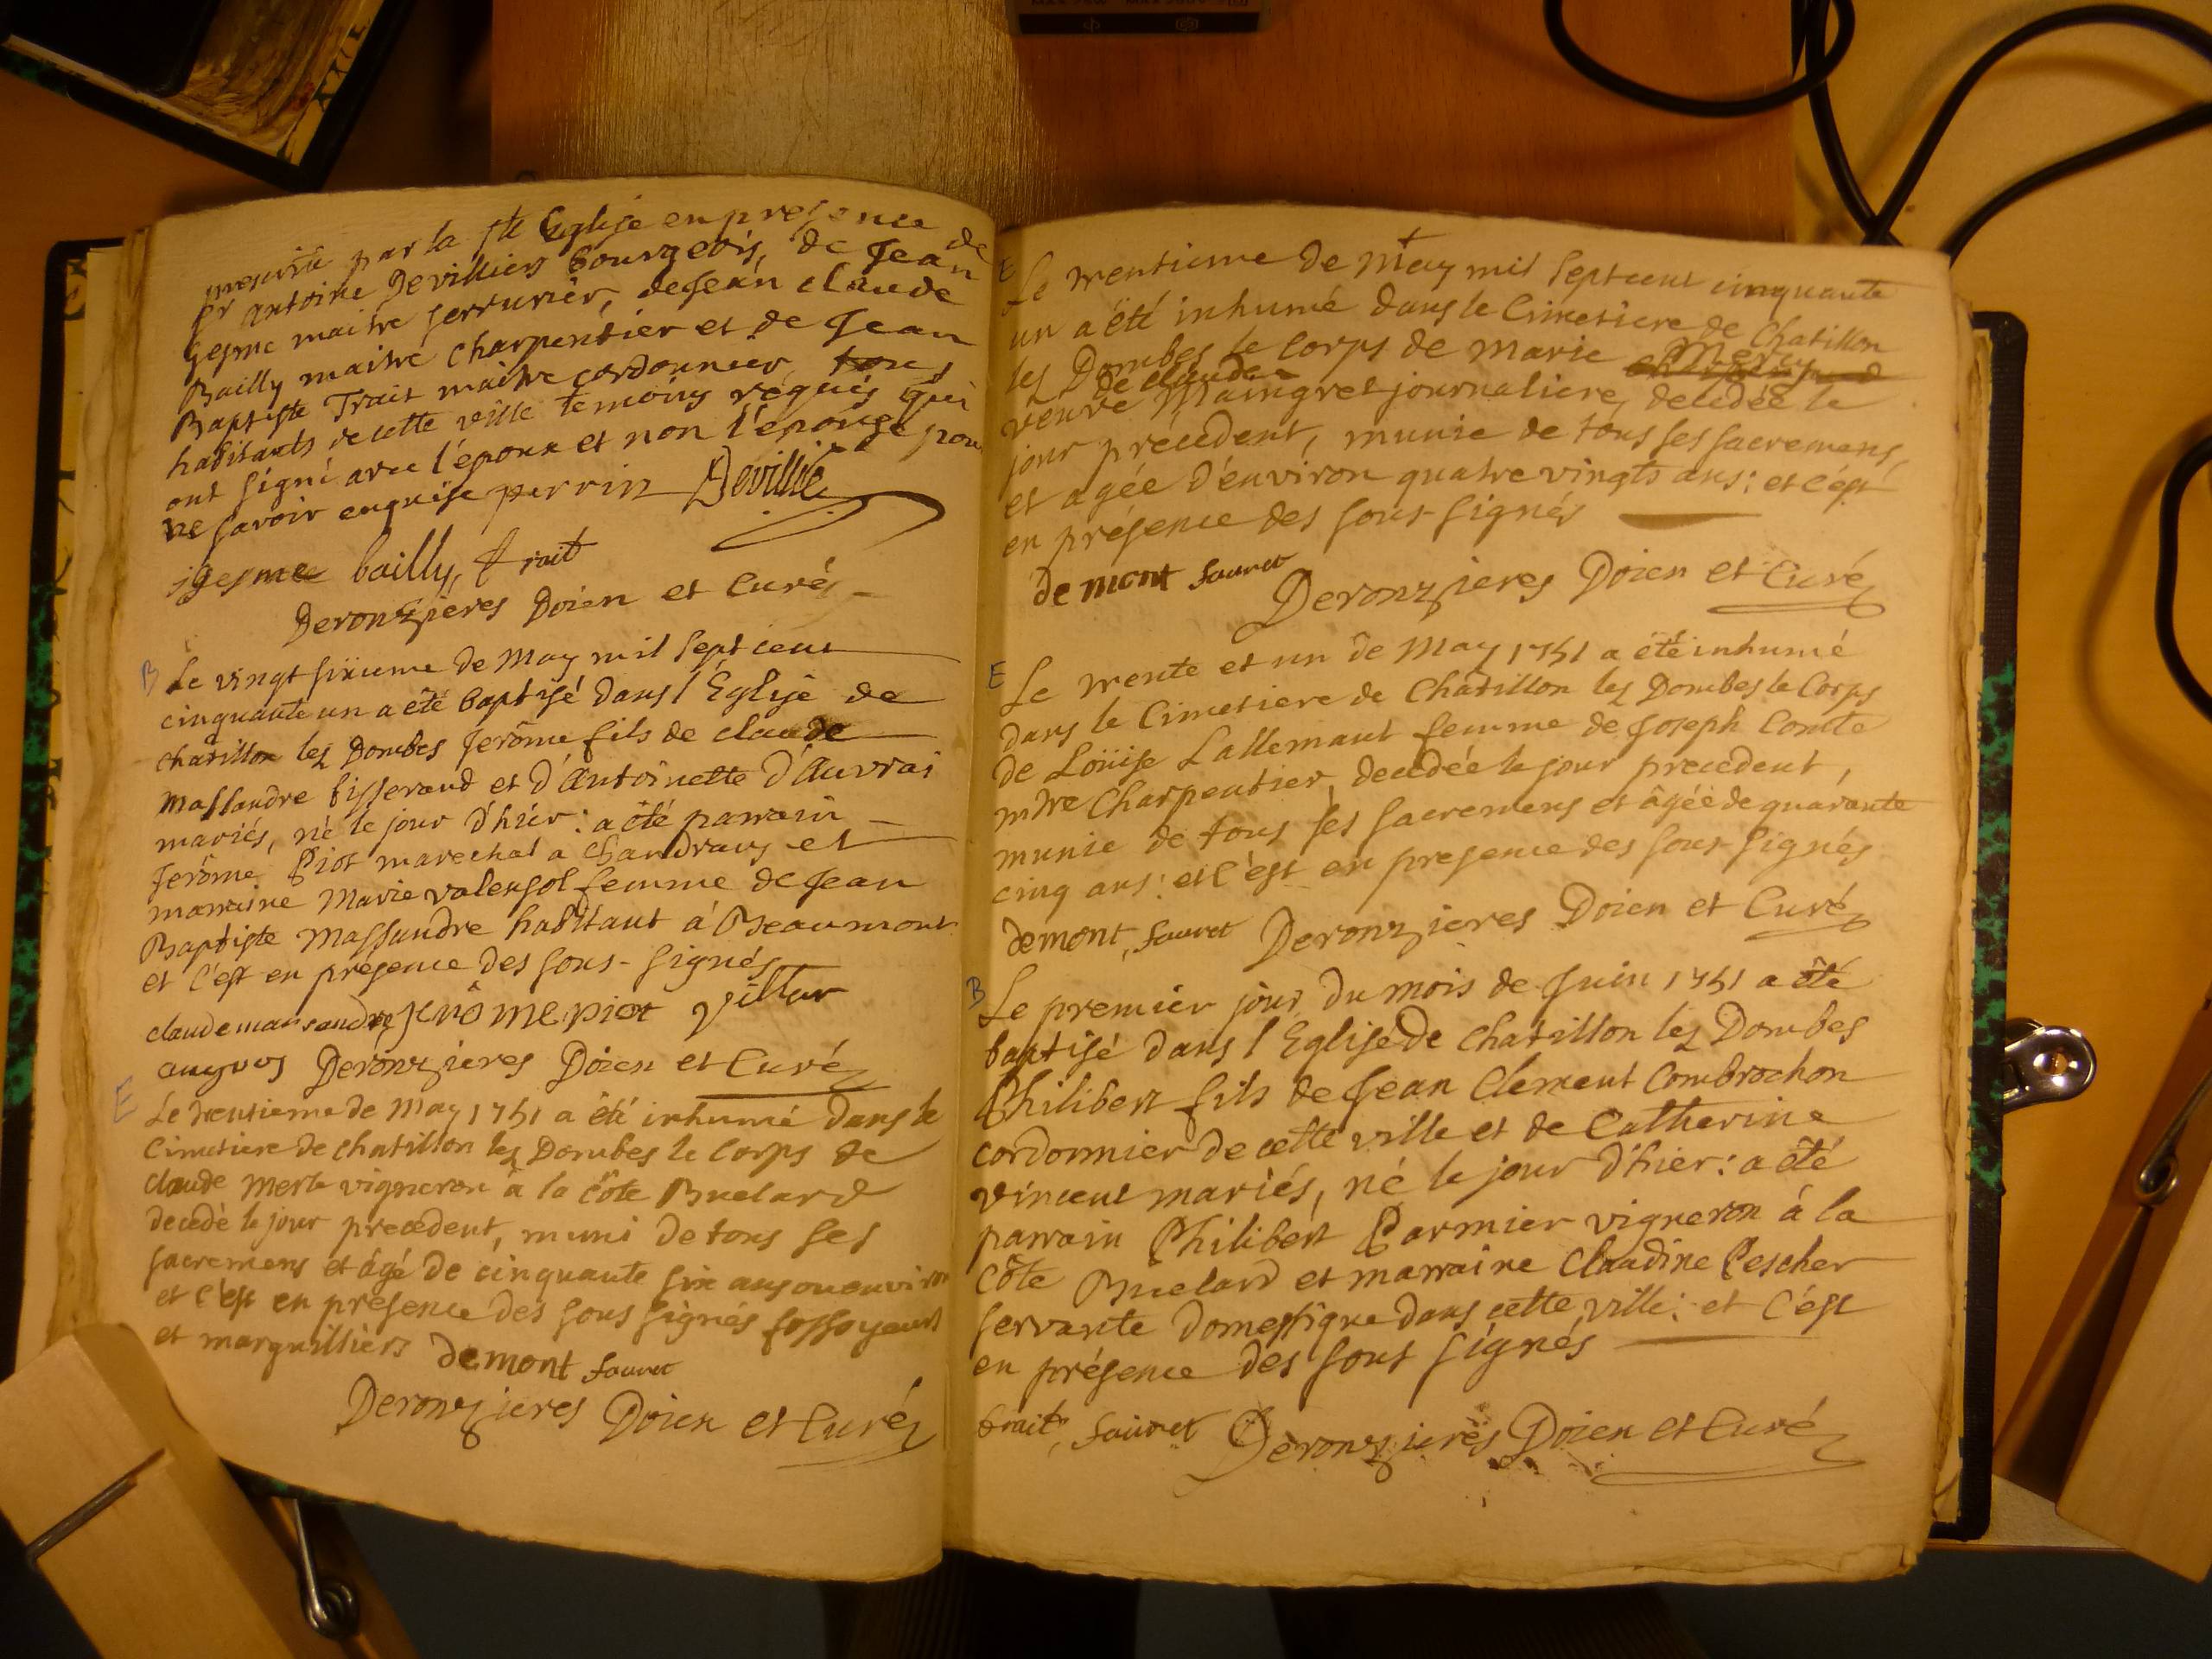 prescritte par la ste Eglise en presence de
Sr antoine Devilliers bourgeois, de Jean
gesme maitre serrurier, de Jean claude
Bailly maitre charpentier et de Jean
Baptiste Trait maitre cordonnier, tous
habitants de cette ville temoins requis qui
ont signé avec l'époux et non l'épouse pour
ne savoir enquise perrin Devillié
jgesme bailly, trait
Deronzieres Doien et Curé
B Le vingt sixieme de May mil sept cent
cinquante un a été baptisé dans l'Eglise de
chatillon les Dombes Jerôme fils de claude
Massandre tisserand et d'Antoinette D'Auvrai
mariés, né le jour d'hier : a été parrain
Jerôme Piot marechal a Chandrans et
marraine Marie valensol femme de Jean
Baptiste Massandre habitant à Beaumont
et c'est en présence des sous-signés
claude marsandre, Jerôme piot villar
Deronzieres Doien et Curé
E Le trentieme de May 1751 a été inhumé dans le
Cimetiere de chatillon les Dombes le Corps de
claude Merle vigneron à la Côte Buelard
decedé le jour precedent, muni de tous ses
sacremens et âgé de cinquante six ans ou environ
et c'est en présence des sous signés fossoyeurs
et marguilliers demont sauret
Deronzieres Doien et Curé
E Le trentieme de May mil sept cent cinquante
un a été inhumé dans le Cimetiere de Chatillon
les Dombes le Corps de Marie Mercy
de claude
veuve Maingret journaliere, decedée le
jour précedent, munie de tous ses sacremens,
et agée d'environ quatre vingts ans : et c'est
en présence des sous-signés
de mont sauret
Deronzieres Doien et Curé
E Le trente et un de May 1751 a été inhumé
dans le Cimetiere de Chatillon les Dombes le Corps
de Loüise Lallemant femme de Joseph Comte
mtre Charpentier, decedée le jour precedent,
munie de tous ses sacremens et âgée de quarante
cinq ans : et c'est en presence des sous-signés
demont, sauret Deronzieres Doien et Curé
B Le premier jour du mois de Juin 1751 a été
baptisé dans l'Eglise de Chatillon les Dombes
Philibert fils de Jean Clement Combrochon
cordonnier de cette ville et de Catherine
vincent mariés, né le jour d'hier : a été
parrain Philibert Parmier vigneron à la
Côte Buelard et marraine Claudine Pescher
servante domestique dans cette ville : et c'est
en présence des sous signés
trait, sauret Deronzieres Doien et Curé